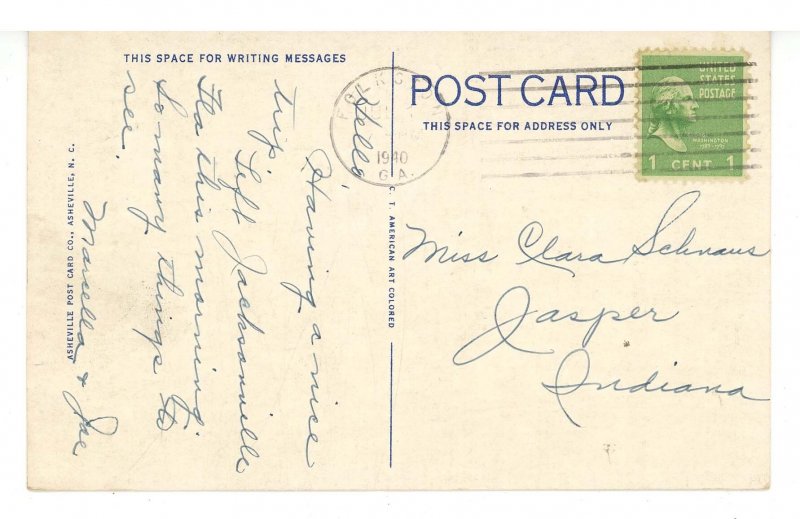 THIS SPACE FOR WRITING MESSAGES
POST CARD
THIS SPACE FOR ADDRESS ONLY
FOLKSTON
1940
GA.
UNITED
STATES
POSTAGE
WASHINGTON
1 CENT 1
Hello
Having a nice
trip. Left Jacksonville
Fla this morning.
So many things to
see.
Marcella & Joe
Miss Clara Schnaus
Jasper
Indiana
C. T. AMERICAN ART COLORED
ASHEVILLE POST CARD CO., ASHEVILLE, N. C.